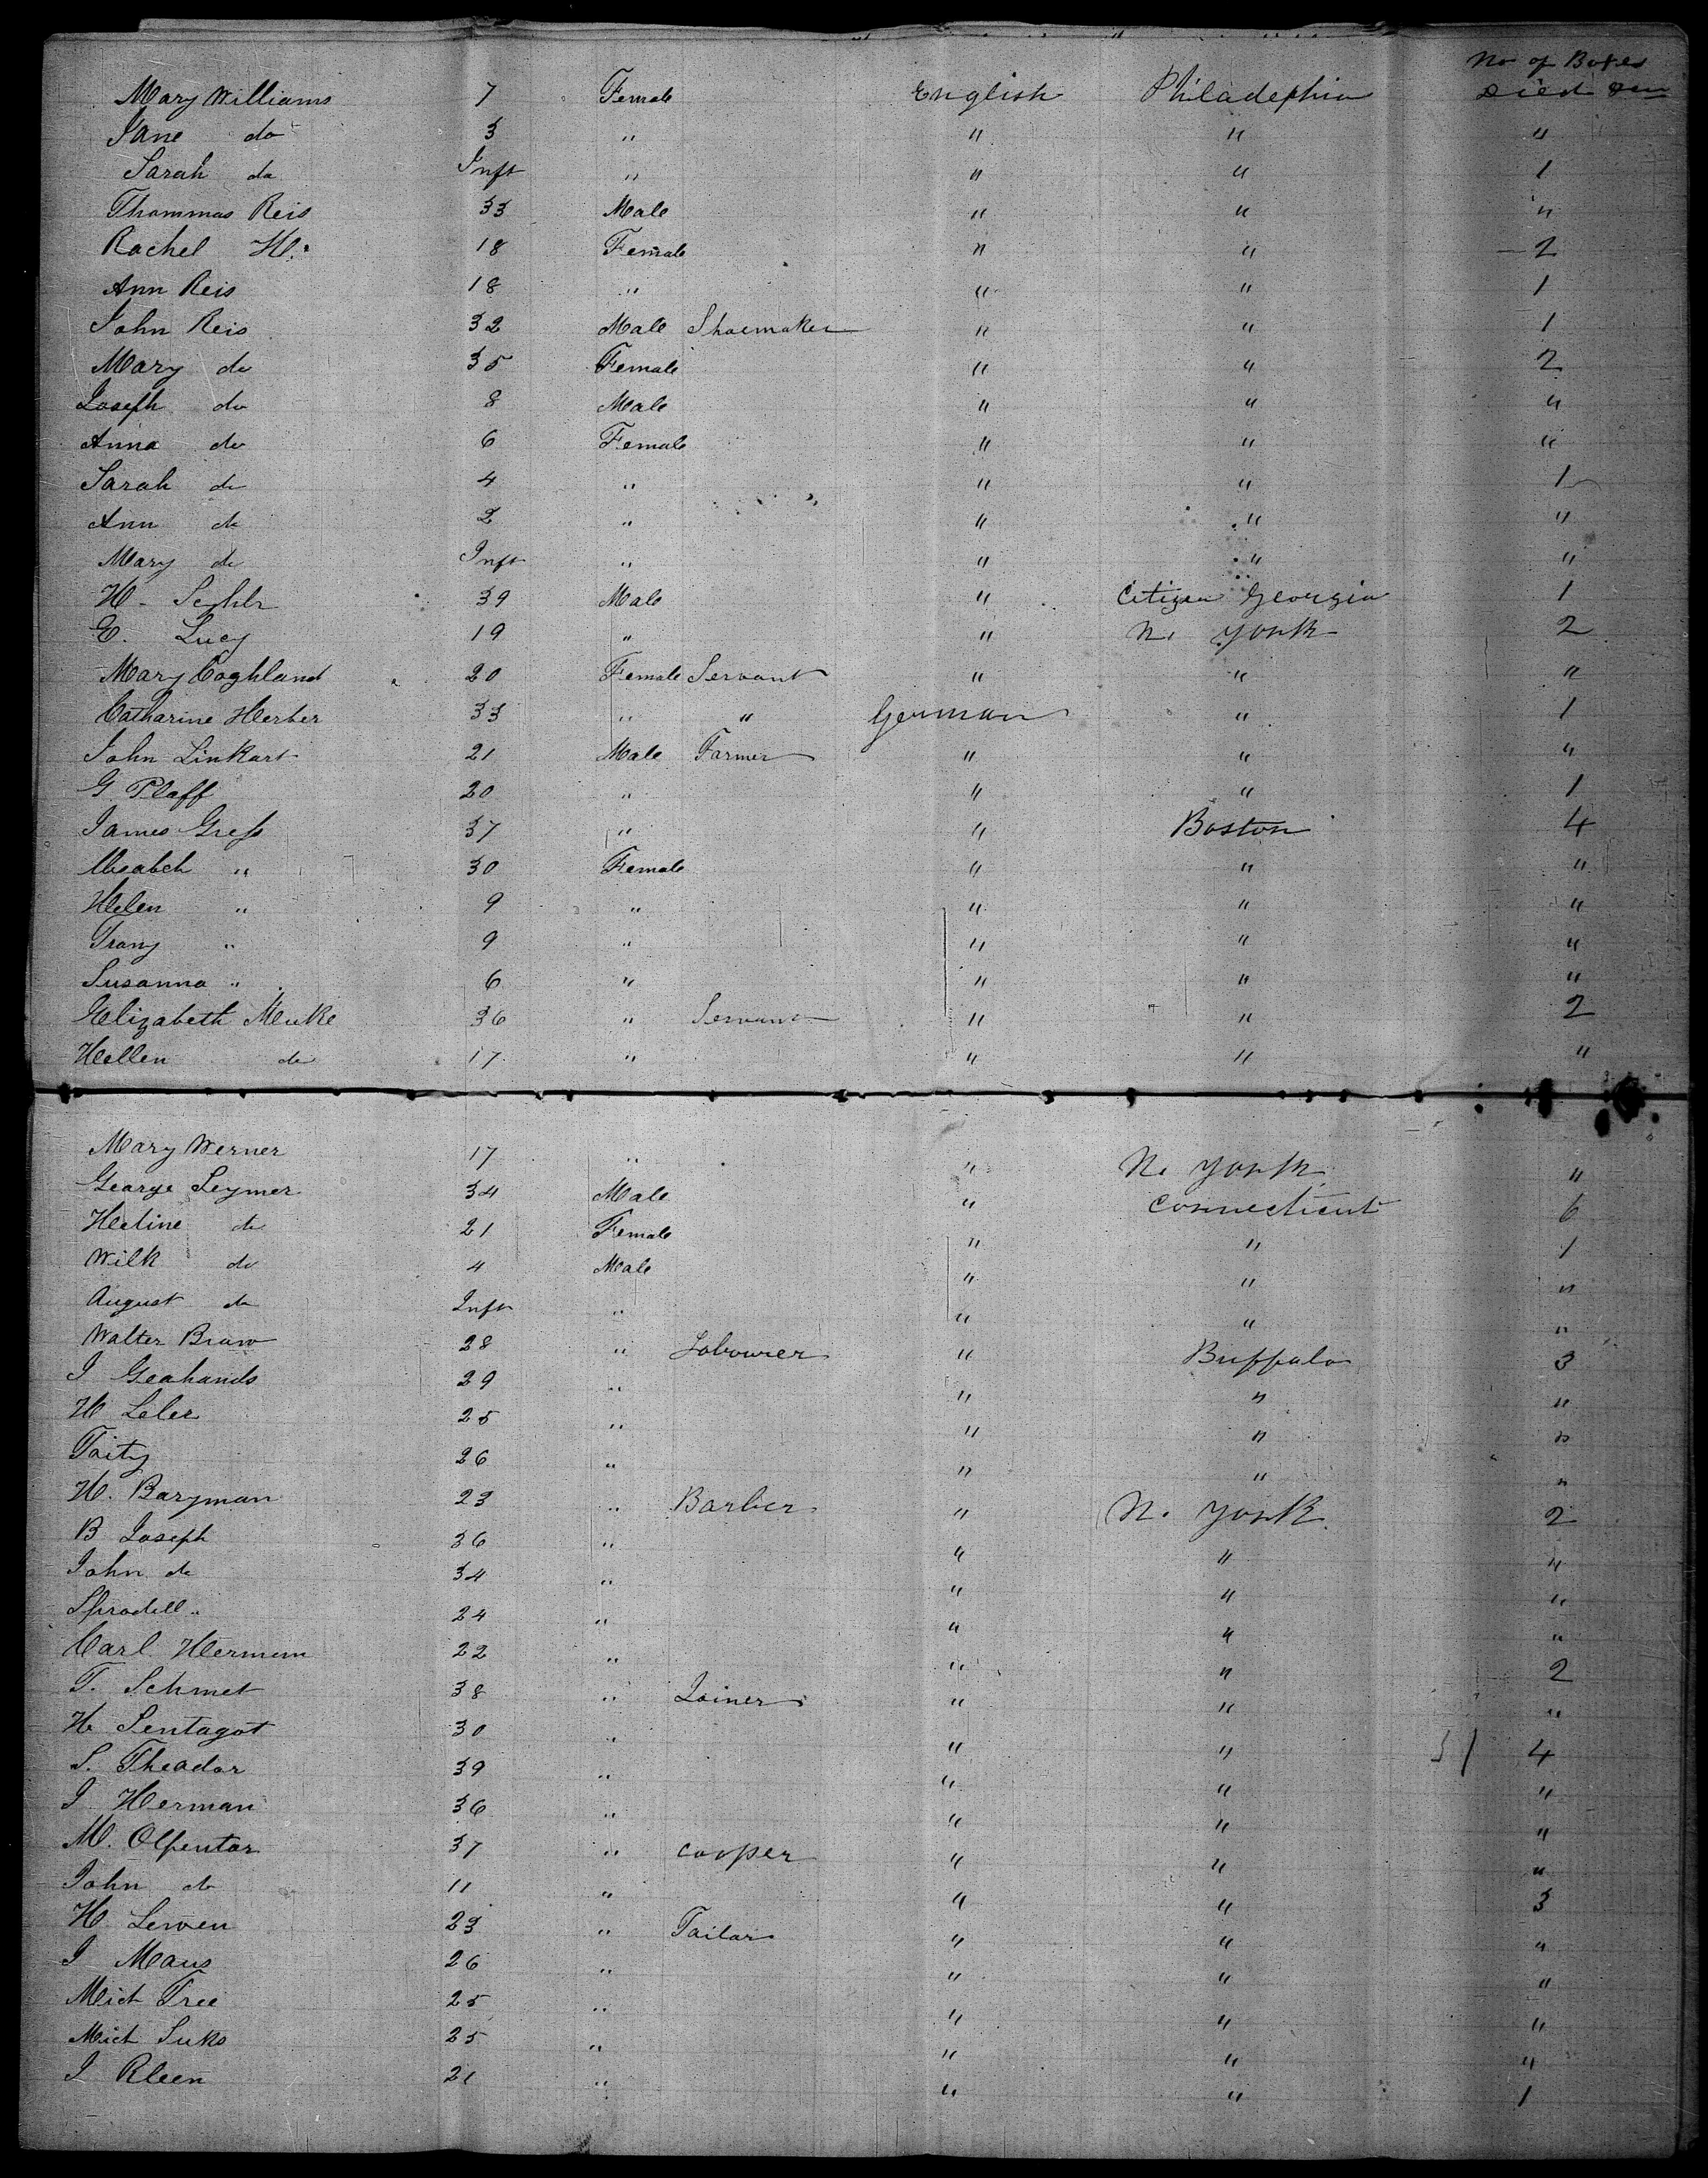 No of Boxes
Mary Williams 7 Female English Philadephia Died
Jane do 3 " " " "
Sarah do Inft " " " 1
Thommas Reis 33 Male " " "
Rachel H. 18 Female " " 2
Ann Reis 18 " " " 1
John Reis 32 Male Shoemaker " " 1
Mary do 35 Female " " 2
Joseph do 8 Male " " "
Anna do 6 Female " " "
Sarah do 4 " " " 1
Ann do 2 " " " "
Mary do Inft " " " "
H. 39 Male " Citizen Georgia 1
E. Lucy 19 " " N. York 2
Mary Coghland 20 Female Servant " " "
Catharine Herber 33 " " German " 1
John Linkart 21 Male Farmer " " "
G. Plaff 20 " " " 1
James Gress 37 " " Boston 4
" 30 Female " " "
Helen " 9 " " " "
" 9 " " " "
Susanna " 6 " " " "
Elizabeth Meuke 36 " Servant " " 2
Hellen do 17 " " " "
Mary Werner 17 " " N. York "
George Seymer 34 Male " Connecticut 6
Heeline do 21 Female " " 1
Wilk do 4 Male " " "
August do Inft " " " "
Walter Braw 28 " Labourer " Buffalo 3
J Geahands 29 " " " "
H Leler 25 " " " "
Taity 26 " " " "
H. Baryman 23 " Barber " N. York 2
B Joseph 36 " " " "
John do 34 " " " "
24 " " " "
Carl Hermem 22 " " " 2
T. Schmet 38 " Joiner " " "
H Sentagot 30 " " " 4
S. Theador 39 " " " "
J Herman 36 " " " "
M. Olpentar 37 " Cooper " " "
John do 11 " " " 3
H Lewen 23 " Tailor " " "
J Maus 26 " " " "
Mich Tree 25 " " " "
Mich Suks 25 " " " "
J Kleen 21 " " " 1